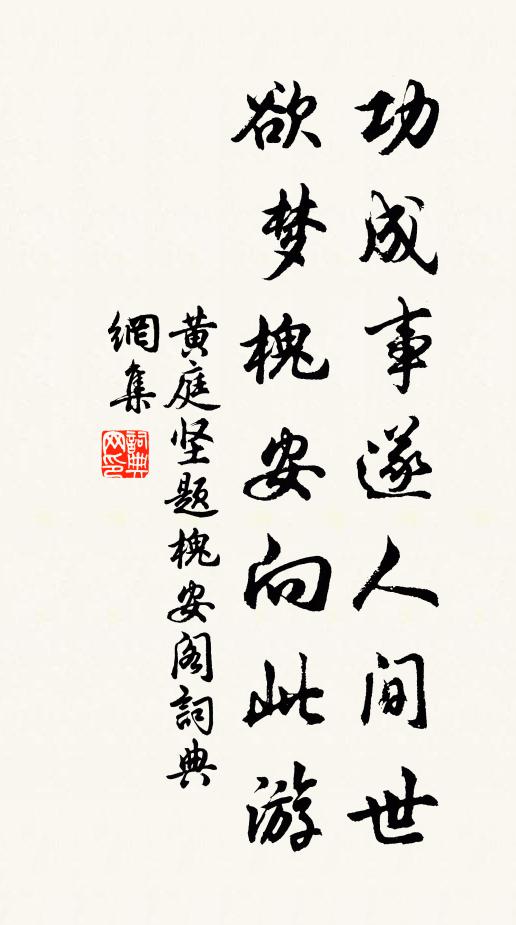 功成事遂人间世
欲梦槐安向此游
黄庭坚题槐安阁詞典
網集
詞典网印